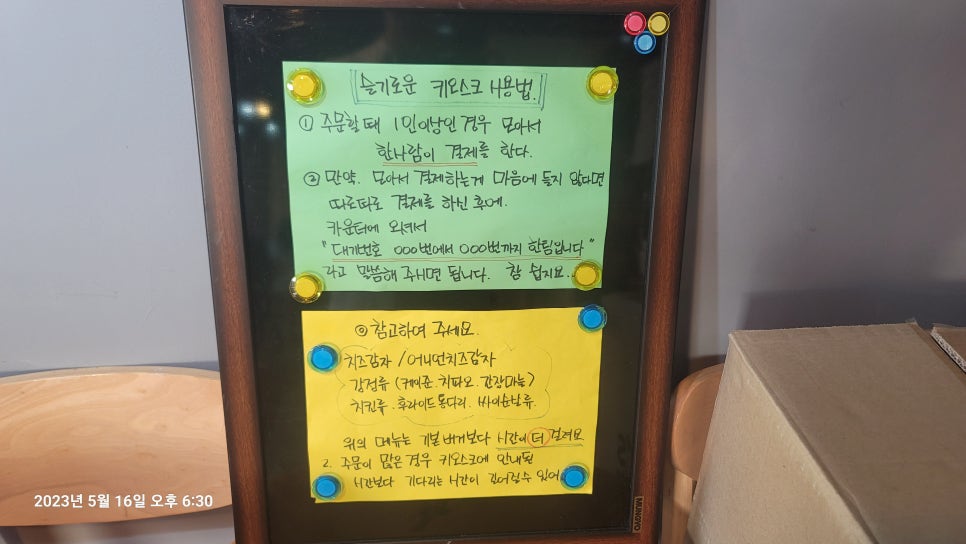 슬기로운 키오스크 사용법.
① 주문할 때 1인이상인 경우 모아서
한사람이 결제를 한다.
② 만약. 모아서 결제하는게 마음에 들지 않다면
따로따로 결제를 하신 후에.
카운터에 오셔서
"대기번호 000번에서 000번까지 한팀입니다"
라고 말씀해 주시면 됩니다. 참 쉽지요..
◎ 참고하여 주세요.
치즈감자 / 어니언치즈감자
강정류 (케이준.치파오.간장마늘)
치킨류.후라이드통다리.싸이순살류.
위의 메뉴는 기본버거보다 시간이 더 걸려요
2. 주문이 많은 경우 키오스크에 안내된
시간보다 기다리는 시간이 길어질수 있어
MUNGYO
2023년 5월 16일 오후 6:30